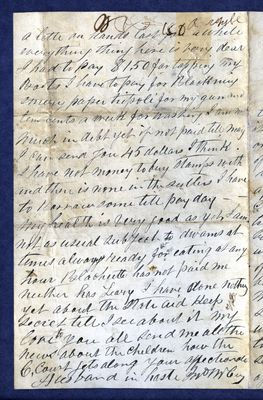 a little on hand last a while
everything thing here is very dear
I had to pay $1.50 for tapping my
Boots I have to pay for Blackning
emery paper for my gun and
ten cents a week for washing I am not
much in debt yet if not paid till may
I can send you 45 dollars I think
I have not money to buy stamps with
and there is none in the sutlers I have
to borrow some till pay day
my health is very good as yet I am
not as usual subject to at
times always ready for eating at any
hour has not paid me
neither has Leary I have done nothing
yet about the State aid keep
till I see about it my
love you all send me all the
news about the children how the
C. Court gets along your affectionate
Husband in haste